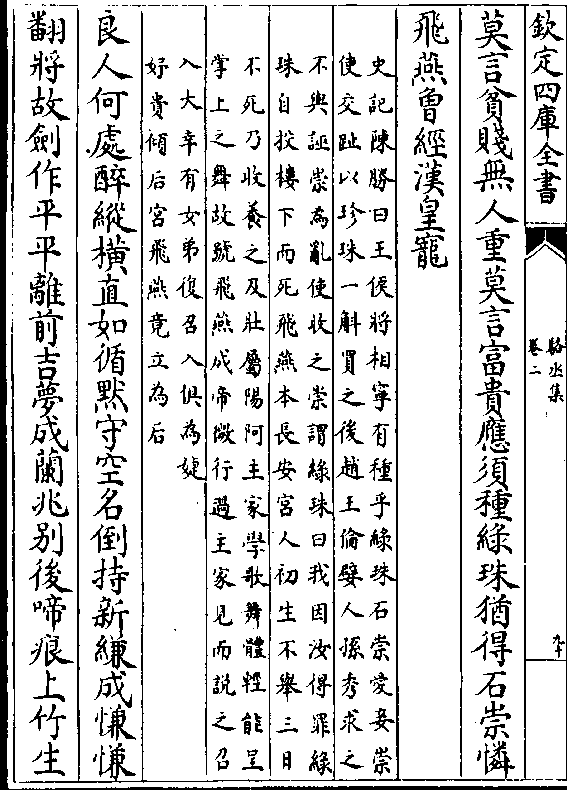 欽定四庫全書
駱丞集
卷二
九十
莫言貧賤無人重莫言富貴應須種綠珠猶得石崇憐
飛燕曾經漢皇寵
史記陳勝曰王侯將相寧有種乎綠珠石崇愛妾崇
使交趾以珍珠一斛買之後趙王倫嬖人孫秀求之
不與誣崇為亂使收之崇謂綠珠曰我因汝得罪綠
珠自投樓下而死飛燕本長安宮人初生不舉三日
不死乃收養之及壯屬陽阿主家學歌舞體輕能呈
掌上之舞故號飛燕成帝微行過主家見而説之召
入大幸有女弟復召入俱為婕
妤貴傾后宮飛燕竟立為后
良人何處醉縱橫直如循默守空名倒持新縑成慊慊
翻將故劍作平平離前吉夢成蘭兆别後啼痕上竹生